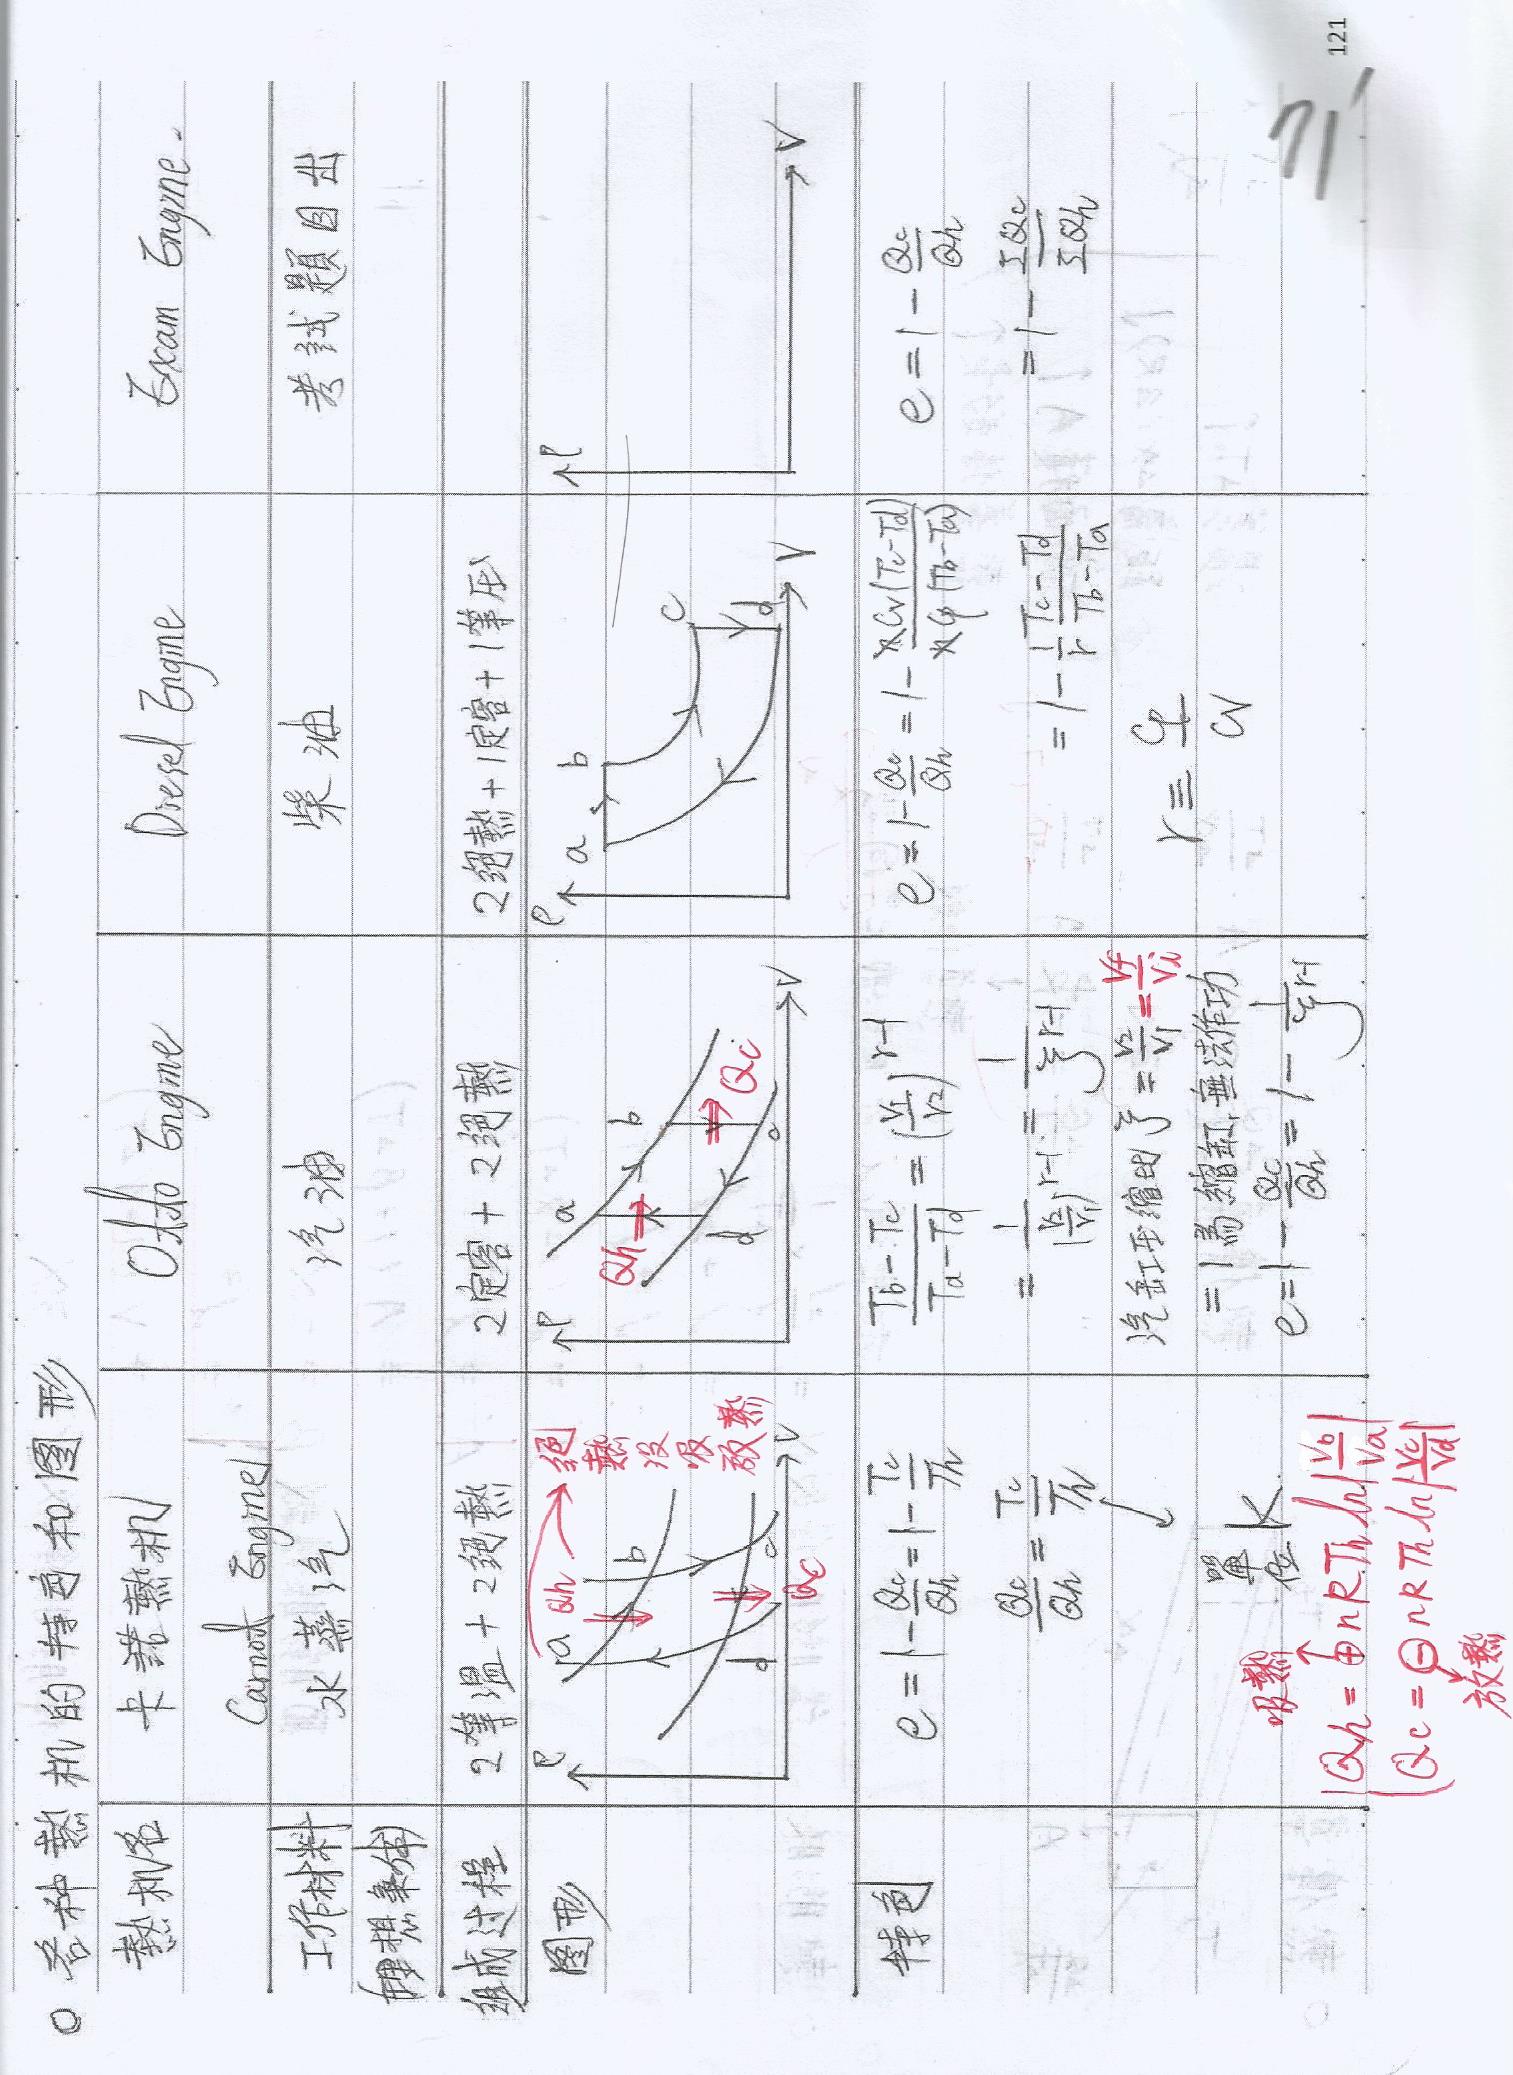 ○ 各种熱机的特色和圖形
熱机名
卡諾熱机
Carnot Engine
Otto Engine
Diesel Engine
Exam Engine.
工作材料
(理想氣体)
水蒸汽
汽油
柴油
考試題目出
組成过程
2等溫+2絕熱
2定容+2絕熱
2絕熱+1定容+1等压
圖形
P
V
a
b
c
d
Qh
Qc
絕熱沒吸放熱
P
V
a
b
c
d
Qh
Qc
P
V
a
b
c
d
P
V
特色
e=1-Qc/Qh=1-Tc/Th
Qc/Qh=Tc/Th
單位 K
吸熱
Qh=⊕nRTh ln|Vb/Va|
Qc=⊖nRTh ln|Vc/Vd|
放熱
(Tb-Tc)/(Ta-Td)=(V1/V2)^(r-1)
=1/(V2/V1)^(r-1)=1/ξ^(r-1)
汽缸压縮比ξ=V2/V1=Vf/Vi
=1為縮缸,無法作功
e=1-Qc/Qh=1-1/ξ^(r-1)
e=1-Qc/Qh=1-nCv(Tc-Td)/nCp(Tb-Ta)
=1-1/r (Tc-Td)/(Tb-Ta)
r≡Cp/Cv
e=1-Qc/Qh
=1-ΣQc/ΣQh
121